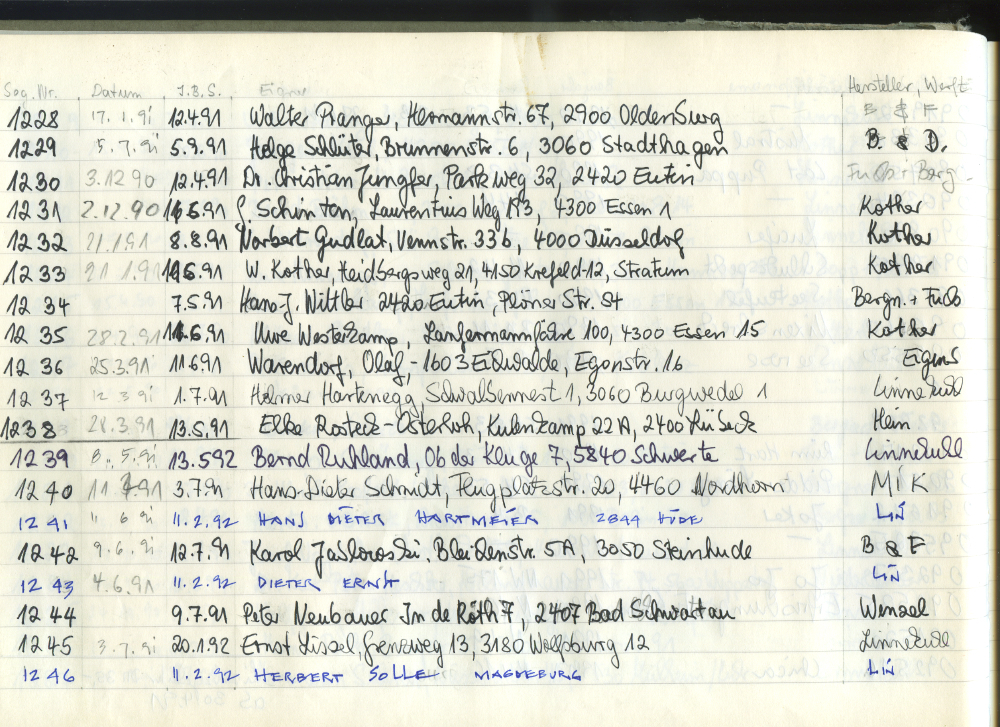 Seg.Nr. Datum J.B.S. Eigner Hersteller, Werft
1228 17.1.91 12.4.91 Walter Pranger, Hermannstr. 67, 2900 Oldenburg B & F
1229 5.7.91 5.9.91 Helge Schlüter, Brunnenstr. 6, 3060 Stadthagen B. & D.
1230 3.12.90 12.4.91 Dr. Christian Jungfer, Parkweg 32, 2420 Eutin
1231 2.12.90 Laurentius Weg 4300 Essen 1 Kother
1232 21.1.91 8.8.91 Norbert Gudlat, Vennstr. 33b, 4000 Düsseldorf Kother
1233 21.1.91 W. Kother, Heidbergsweg 21, 4150 Krefeld-12, Stratum Kother
1234 7.5.91 Hans-J. Wittler 2420 Eutin, Plöner Str. Bergn. + Fuchs
1235 28.2.91 Uwe Westerkamp, 100, 4300 Essen 15 Kother
1236 25.3.91 11.6.91 Warendorf, Olaf, - 1603 Eichwalde, Egonstr. 16 Eigenb
1237 12.3.91 1.7.91 Helmer Hartenegg, Schwalbennest 1, 3060 Burgwedel 1 Linnekuhl
1238 28.3.91 13.5.91 Elke 22A, 2400 Lübeck Hein
1239 8.5.91 13.592 Bernd Ruhland, Ob der Kluge 7, 5840 Schwerte Linnekuhl
1240 3.7.91 Hans-Dieter Schmidt, Flugplatzstr. 20, 4460 Nordhorn
1241 11.6.91 11.2.92 HANS DIETER HARTMEIER 2844 HÜDE LIN
1242 9.6.91 12.7.91 Karol Bleichenstr. 5A, 3050 Steinhude B & F
1243 4.6.91 11.2.92 DIETER ERNST LIN
1244 9.7.91 Peter Neubauer In de Röth 7, 2407 Bad Schwartau Wenzel
1245 3.7.91 20.1.92 Ernst Lissel, Grenzweg 13, 3180 Wolfsburg 12 Linnekuhl
1246 11.2.92 HERBERT SOLLE MAGDEBURG LIN